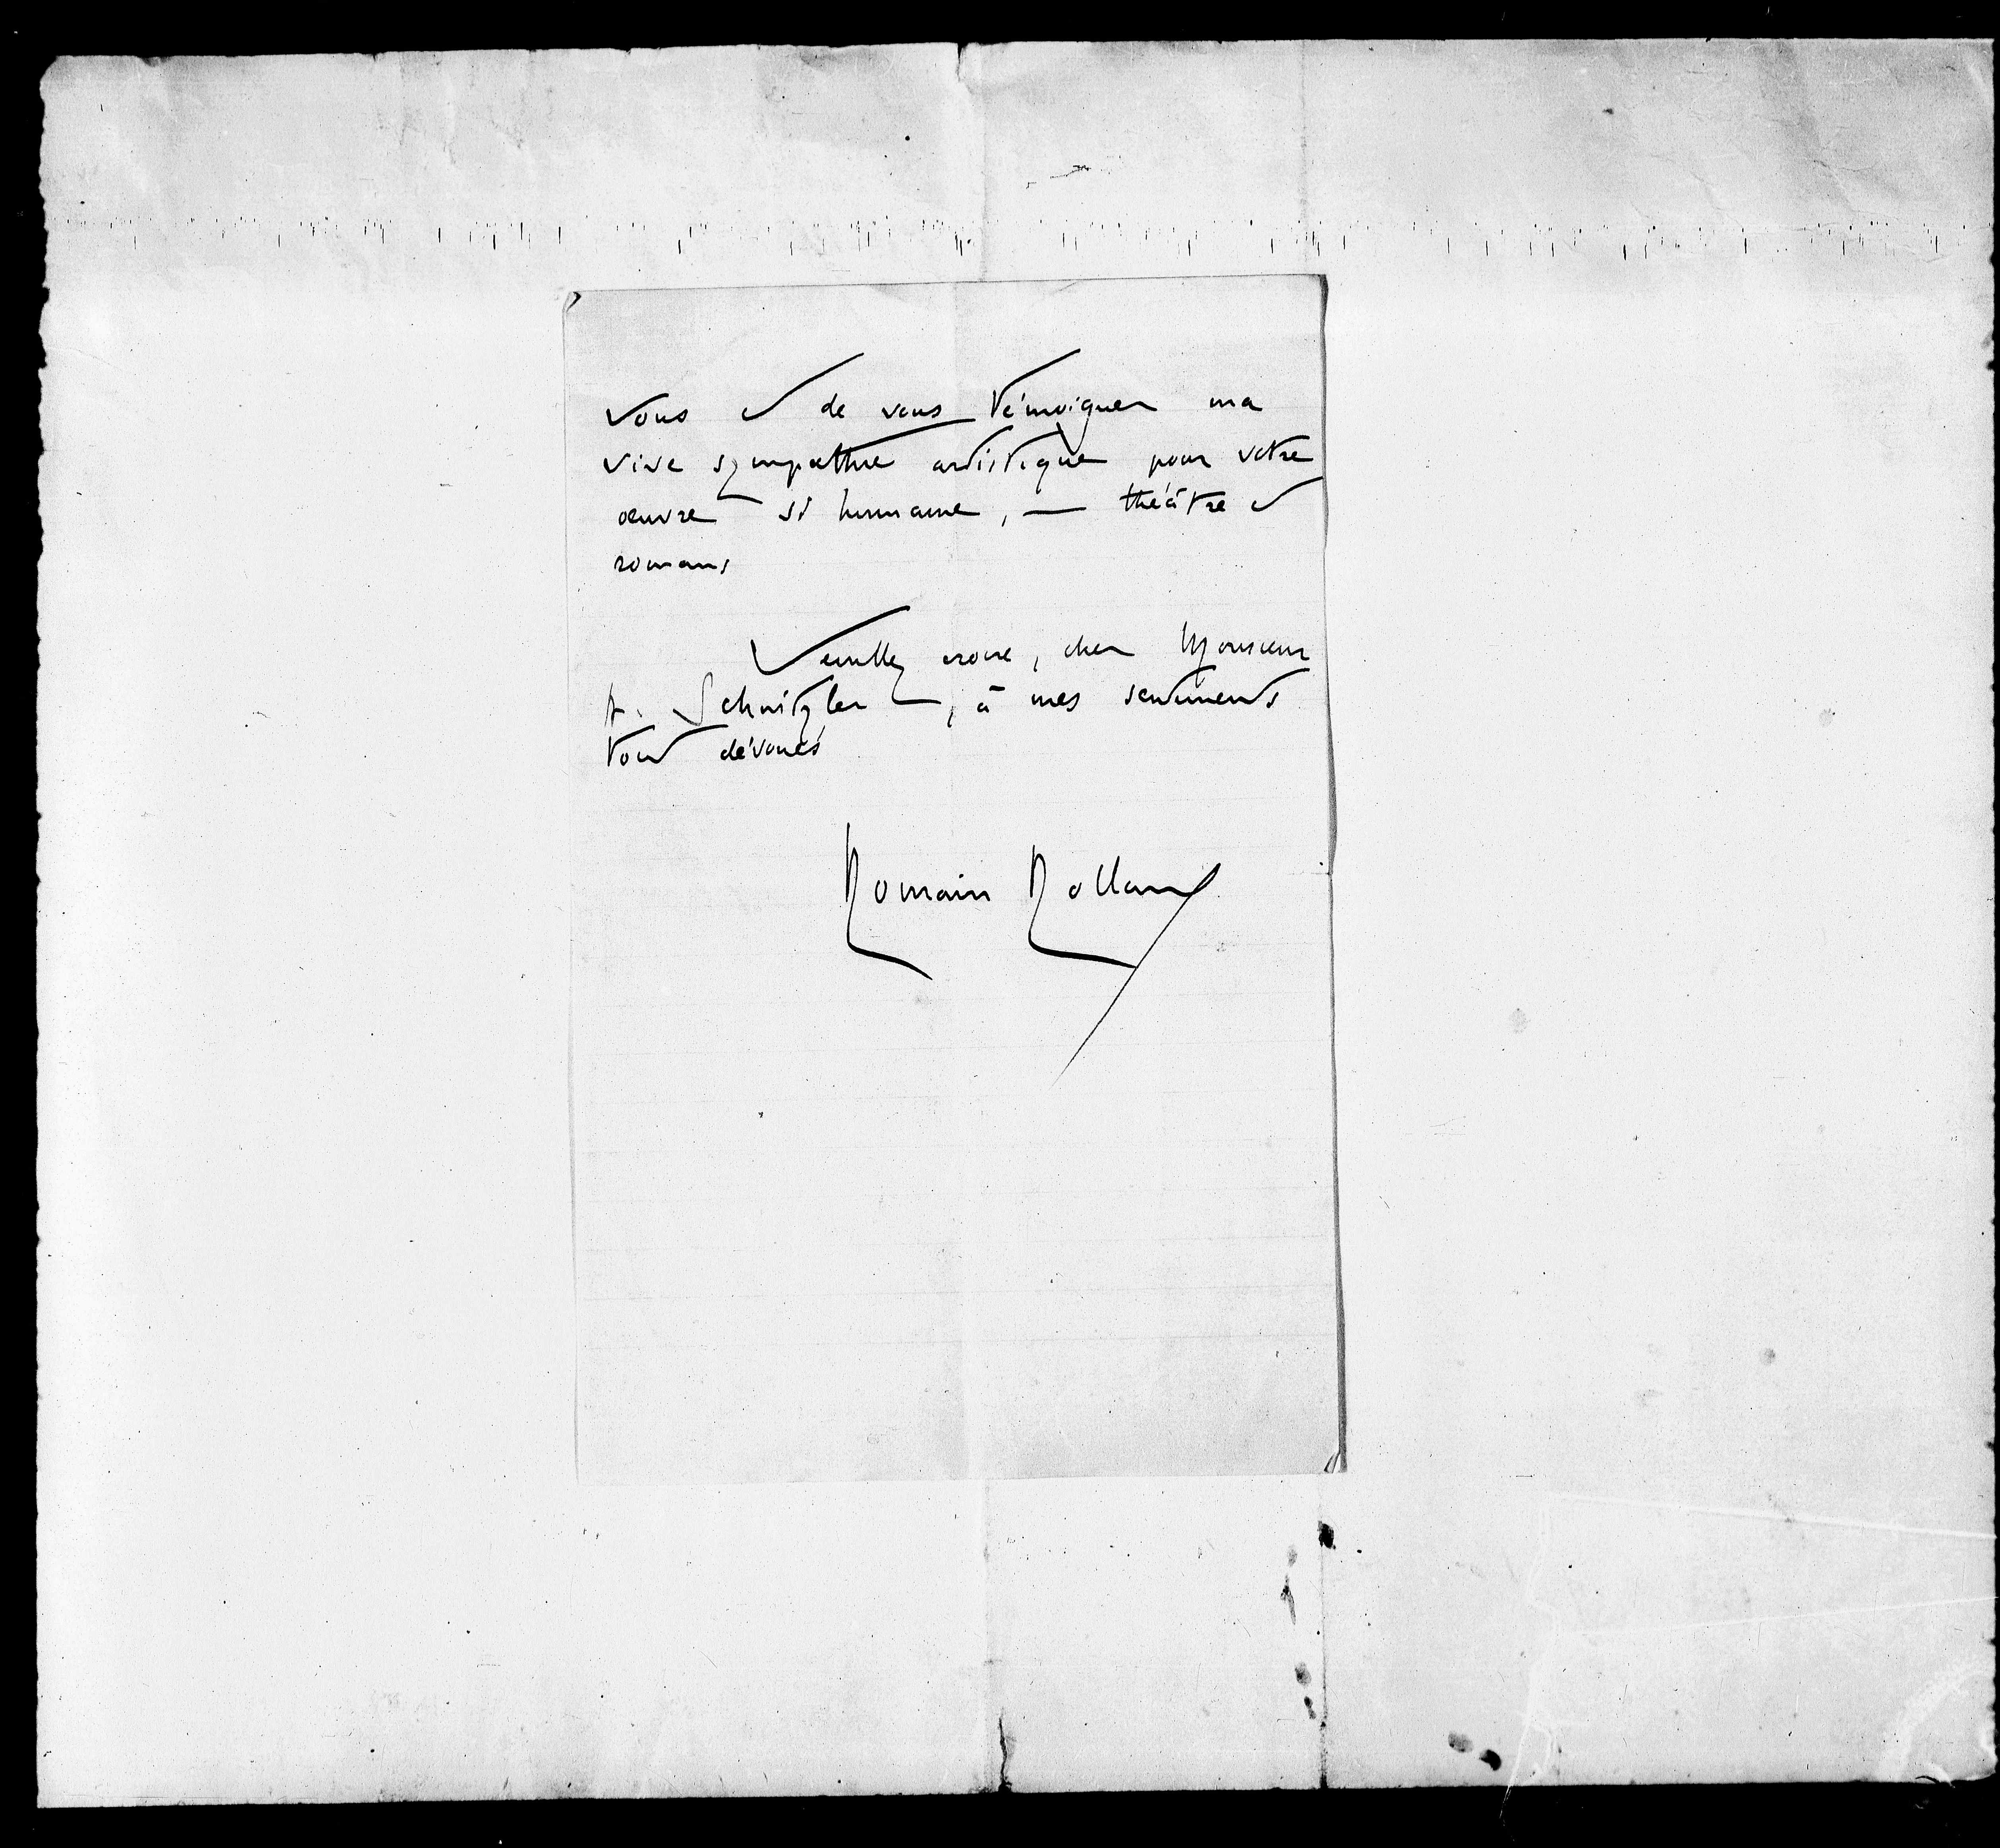 vous et de vous témoigner ma
vive sympathie artistique pour votre
œuvre si humaine, — théâtre et
romans
Veuillez croire, cher Monsieur
A. Schnitzler, à mes sentiments
tout dévoués
Romain Rolland